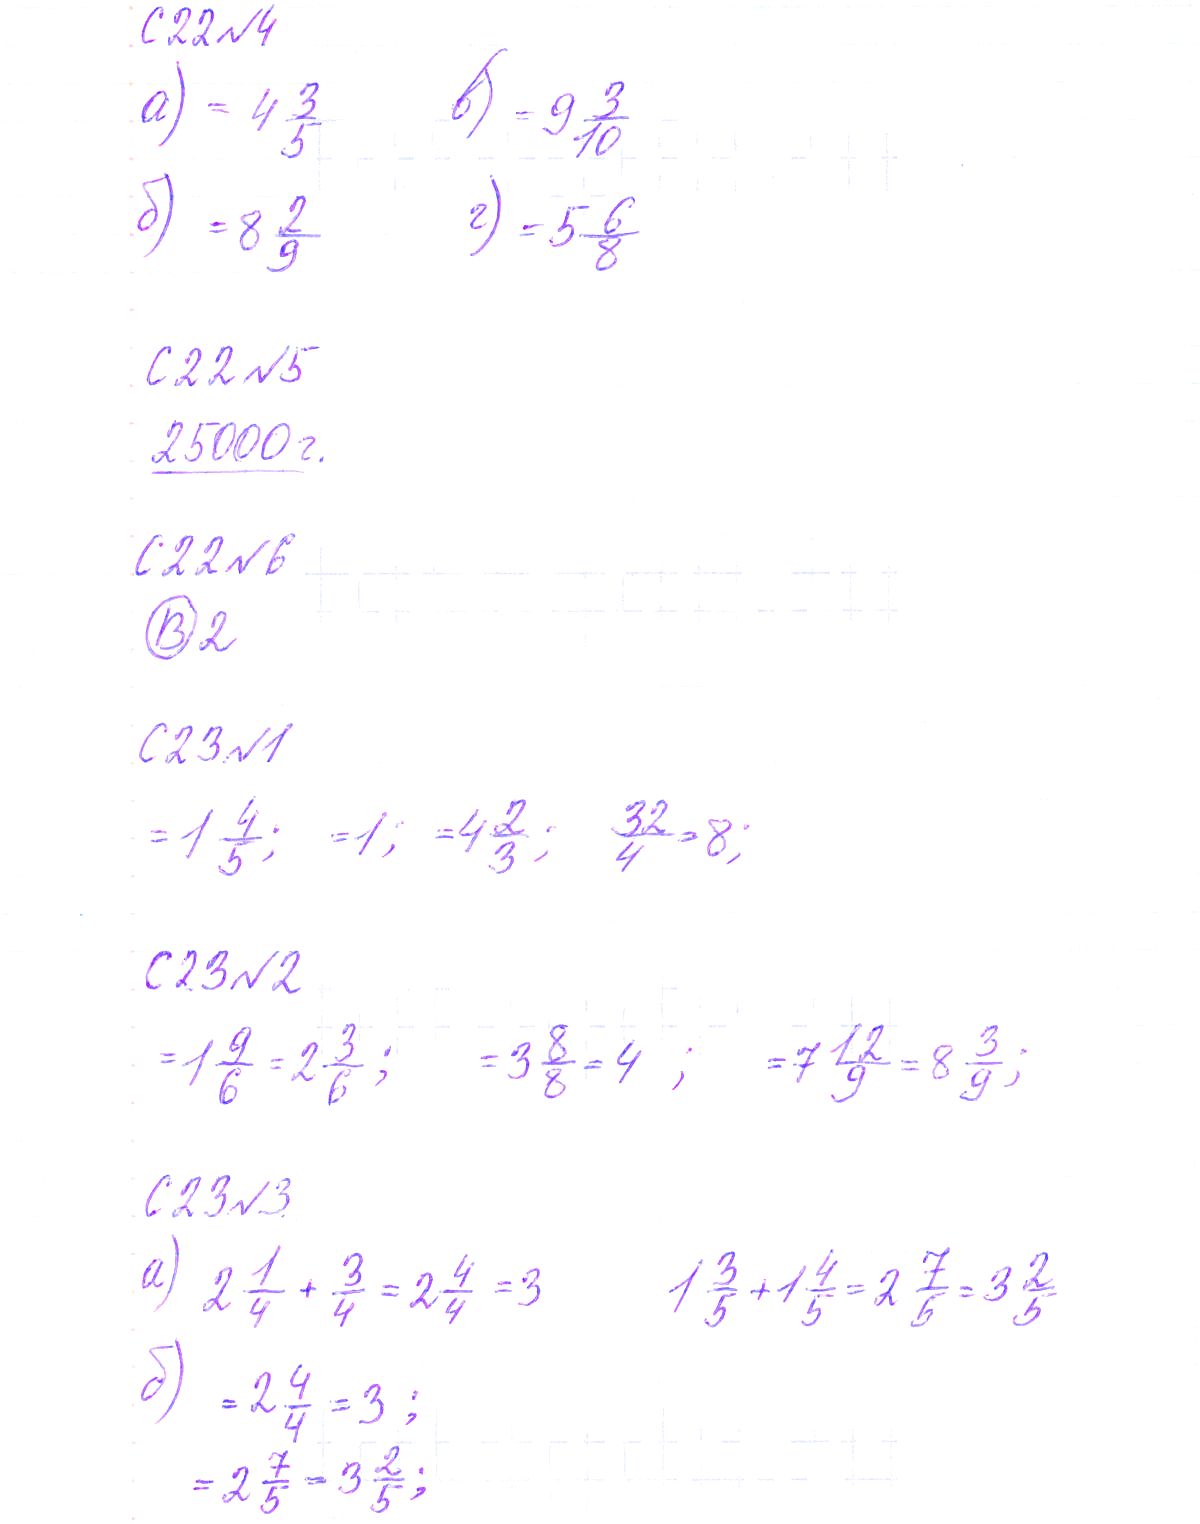 С22№4
а) = 4 3/5 в) = 9 3/10
б) = 8 2/9 г) = 5 6/8
С22№5
25000г.
С22№6
В 2
С23№1
= 1 4/5; = 1; = 4 2/3; 32/4 = 8;
С23№2
= 1 9/6 = 2 3/6; = 3 8/8 = 4 ; = 7 12/9 = 8 3/9;
С23№3
а) 2 1/4 + 3/4 = 2 4/4 = 3 1 3/5 + 1 4/5 = 2 7/5 = 3 2/5
б) = 2 4/4 = 3 ;
= 2 7/5 = 3 2/5 ;